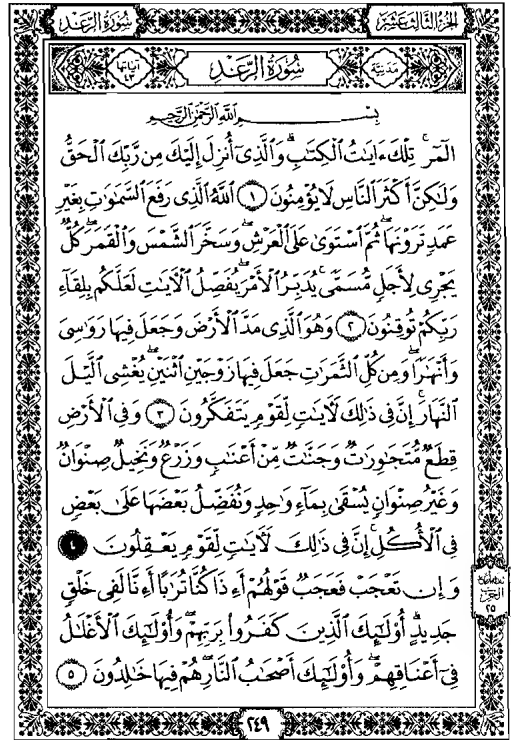 سُورَةُ الرَّعْدِ
الجُزْءُ الثَّالِثُ عَشَرَ
مَدَنِيَّة
سُورَةُ الرَّعْدِ
آيَاتُهَا ٤٣
بِسْمِ اللَّهِ الرَّحْمَٰنِ الرَّحِيمِ
الٓمٓرۚ تِلْكَ ءَايَٰتُ ٱلْكِتَٰبِۗ وَٱلَّذِىٓ أُنزِلَ إِلَيْكَ مِن رَّبِّكَ ٱلْحَقُّ
وَلَٰكِنَّ أَكْثَرَ ٱلنَّاسِ لَا يُؤْمِنُونَ ١ ٱللَّهُ ٱلَّذِى رَفَعَ ٱلسَّمَٰوَٰتِ بِغَيْرِ
عَمَدٍ تَرَوْنَهَاۖ ثُمَّ ٱسْتَوَىٰ عَلَى ٱلْعَرْشِۖ وَسَخَّرَ ٱلشَّمْسَ وَٱلْقَمَرَۖ كُلٌّ
يَجْرِى لِأَجَلٍ مُّسَمًّىۚ يُدَبِّرُ ٱلْأَمْرَ يُفَصِّلُ ٱلْءَايَٰتِ لَعَلَّكُم بِلِقَآءِ
رَبِّكُمْ تُوقِنُونَ ٢ وَهُوَ ٱلَّذِى مَدَّ ٱلْأَرْضَ وَجَعَلَ فِيهَا رَوَٰسِىَ
وَأَنْهَٰرًاۖ وَمِن كُلِّ ٱلثَّمَرَٰتِ جَعَلَ فِيهَا زَوْجَيْنِ ٱثْنَيْنِۖ يُغْشِى ٱلَّيْلَ
ٱلنَّهَارَۚ إِنَّ فِى ذَٰلِكَ لَءَايَٰتٍ لِّقَوْمٍ يَتَفَكَّرُونَ ٣ وَفِى ٱلْأَرْضِ
قِطَعٌ مُّتَجَٰوِرَٰتٌ وَجَنَّٰتٌ مِّنْ أَعْنَٰبٍ وَزَرْعٌ وَنَخِيلٌ صِنْوَانٌ
وَغَيْرُ صِنْوَانٍ يُسْقَىٰ بِمَآءٍ وَٰحِدٍ وَنُفَضِّلُ بَعْضَهَا عَلَىٰ بَعْضٍ
فِى ٱلْأُكُلِۚ إِنَّ فِى ذَٰلِكَ لَءَايَٰتٍ لِّقَوْمٍ يَعْقِلُونَ ٤
وَإِن تَعْجَبْ فَعَجَبٌ قَوْلُهُمْ أَءِذَا كُنَّا تُرَٰبًا أَءِنَّا لَفِى خَلْقٍ
جَدِيدٍۗ أُو۟لَٰٓئِكَ ٱلَّذِينَ كَفَرُوا۟ بِرَبِّهِمْۖ وَأُو۟لَٰٓئِكَ ٱلْأَغْلَٰلُ
فِىٓ أَعْنَاقِهِمْۖ وَأُو۟لَٰٓئِكَ أَصْحَٰبُ ٱلنَّارِۖ هُمْ فِيهَا خَٰلِدُونَ ٥
الحِزْب
٢٥
٢٤٩